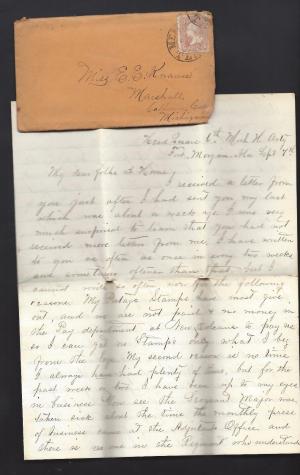 Miss E. E. Knause
Marshall
Calhoun Co
Michigan
Head Quars 6th Mich H. Arty
Fort Morgan Ala Sept 7th
My dear folks at Home
I received a letter from
you just after I had sent you my last
which was about a week ago I was very
much surprised to learn that you had not
received more letters from me, I have written
to you as often as once in every two weeks
and sometimes oftener than that but I
cannot write so often now for the following
reasons My Postage Stamps have most give
out, and we are not paid & no money in
the Pay department at New Orleans to pay us
so I can get no Stamps only what I beg
from the boys My second reason is no time
I always have had plenty of time, but for the
past week or two I have been up to my eyes
in business You see the Sergeant Major was
taken sick about the time the monthly press
of business came at the Adjutants Office and
there is no one in the Regiment who understands